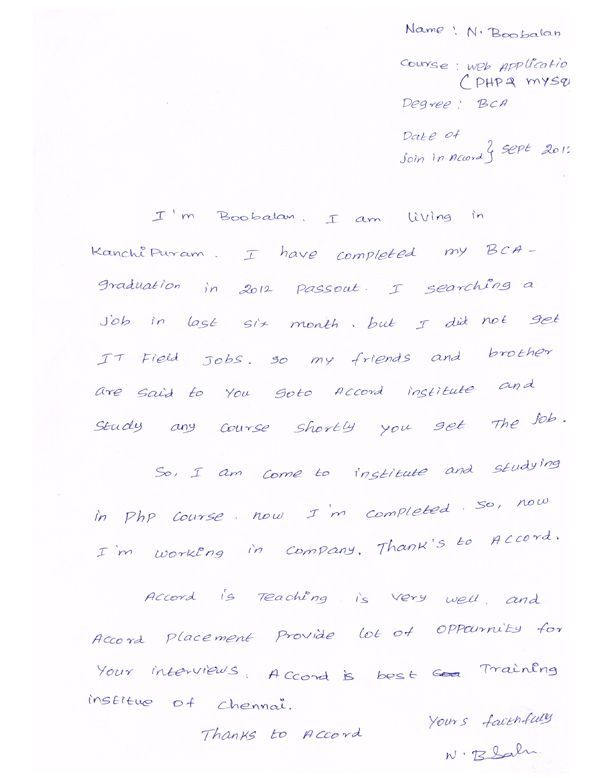 Name : N. Boobalan
Course : Web Applicatio
( PHP & MySQ
Degree : BCA
Date of
Join in Accord } Sept 201
I'm Boobalan. I am living in
KanchiPuram. I have completed my BCA-
graduation in 2012 Passout. I searching a
Job in last six month. but I did not get
IT Field Jobs. so my friends and brother
are said to you goto Accord institute and
study any course shortly you get The Job.
So, I am come to institute and studying
in Php course. now I'm completed. So, now
I'm working in company. Thank's to Accord.
Accord is Teaching is very well. and
Accord Placement Provide lot of OPPournity for
Your interviews. Accord is best Training
institue of Chennai.
Thanks to Accord
Yours faithfully